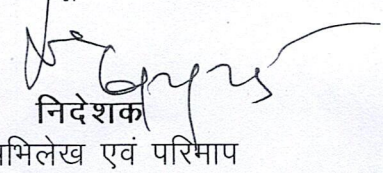 निदेशक
भिलेख एवं परिमाप